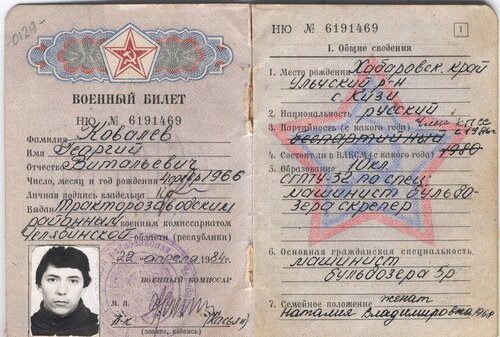 -0129-
ВОЕННЫЙ БИЛЕТ
НЮ № 6191469
Фамилия Ковалев
Имя Георгий
Отчество Витальевич
Число, месяц и год рождения 1966
Личная подпись владельца
Выдан Тракторозаводским
районным военным комиссариатом
Челябинской области (республики)
22 апреля 1984г.
ВОЕННЫЙ КОМИССАР
М. П.
п-к
(звание, подпись)
НЮ № 6191469
1
I. Общие сведения
1. Место рождения Хабаровск. край
Ульчский р-н
с. Кузи
2. Национальность русский
член КПСС
3. Партийность (с какого года) с 1986г.
беспартийный
4. Состоит ли в ВЛКСМ (с какого года) 1980
5. Образование 10 кл.
СПТУ-32 по спец.
машинист бульдо-
зера скрепер
6. Основная гражданская специальность
машинист
бульдозера 5р
7. Семейное положение женат
Наталия Владимировна